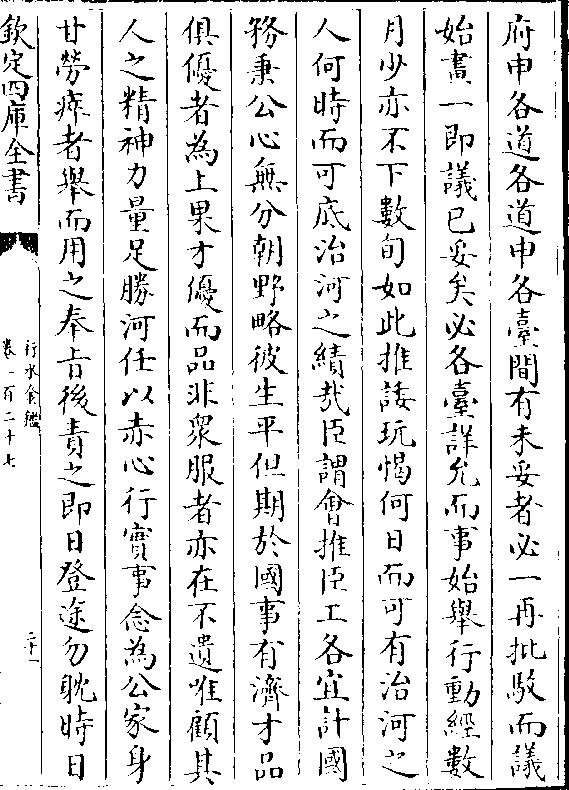 府申各道各道申各臺間有未妥者必一再批駁而議
始畫一即議已妥矣必各臺詳允而事始舉行動經數
月少亦不下數旬如此推諉玩愒何日而可有治河之
人何時而可底治河之績哉臣謂會推臣工各宜計國
務秉公心無分朝野略彼生平但期於國事有濟才品
俱優者為上果才優而品非衆服者亦在不遺唯顧其
人之精神力量足勝河任以赤心行實事念為公家身
甘勞瘁者舉而用之奉㫖後責之即日登途勿耽時日
欽定四庫全書
行水金鑑
卷一百二十七
二十一